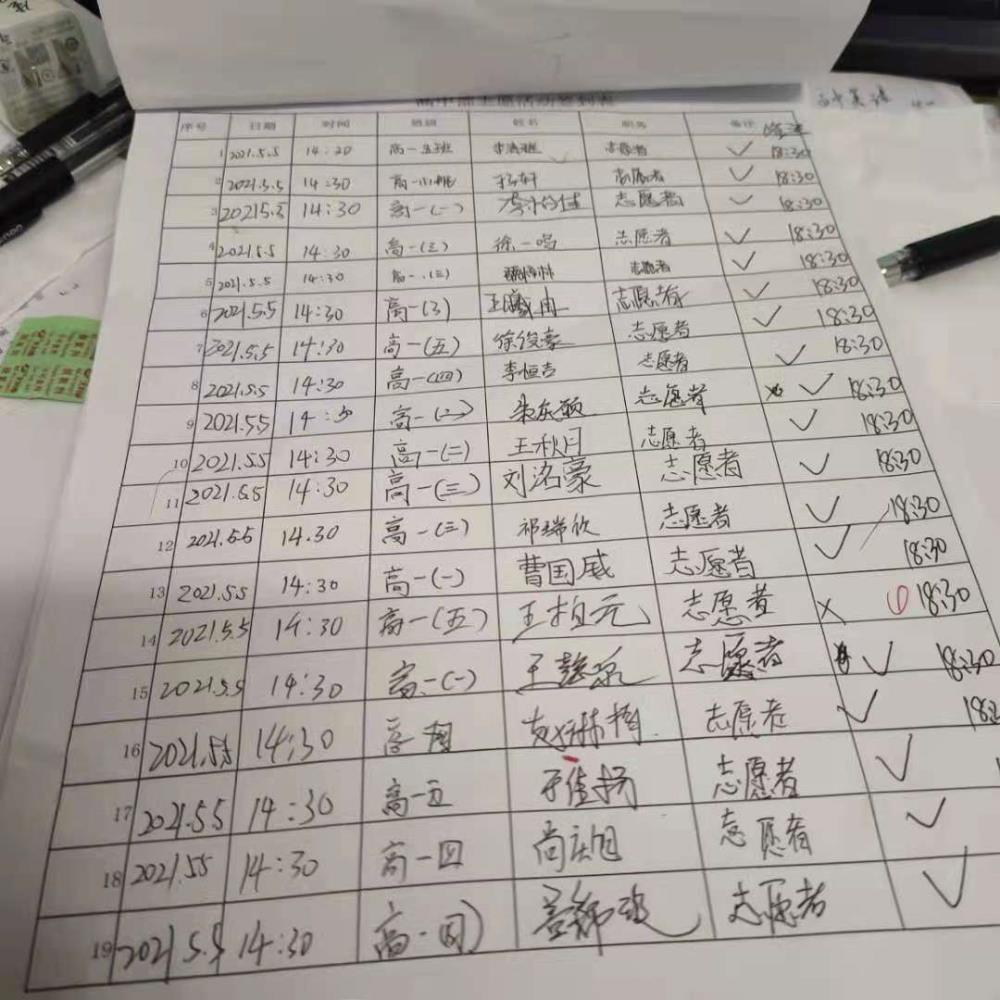 高中部志愿活动签到表
序号 日期 时间 班级 姓名 职务 备注
1 2021.5.5 14:20 高一五班 志愿者 ✓ 18:30
2 2021.5.5 14:30 高一 志愿者 ✓ 18:30
3 2021 5.5 14:30 高一(一) 志愿者 ✓ 18:30
4 2021.5.5 14:30 高一(三) 徐一鸣 志愿者 ✓ 18:30
5 2021.5.5 14:30 高一(三) 志愿者 ✓ 18:30
6 2021.5.5 14:30 高一(3) 志愿者 ✓ 18:30
7 2021.5.5 14:30 高一(五) 徐俊豪 志愿者 ✓ 18:30
8 2021.5.5 14:30 高一(四) 李恒吉 志愿者 ✓ 18:30
9 2021.5.5 14:30 高一(二) 志愿者 ✓ 18:30
10 2021.5.5 14:30 高一(二) 王秋月 志愿者 ✓ 18:30
11 2021.5.5 14:30 高一(三) 刘洺豪 志愿者 ✓ 18:30
12 2021.5.5 14.30 高一(三) 祁瑞欣 志愿者 ✓ 18:30
13 2021.5.5 14:30 高一(一) 曹国威 志愿者 ✓ 18:30
14 2021.5.5 14:30 高一(五) 王柏元 志愿者 × ① 18:30
15 2021.5.5 14:30 高一(一) 志愿者 ✓ 18:30
16 2021.5.5 14:30 高 志愿者 ✓
17 2021.5.5 14:30 高一五 于佳扬 志愿者 ✓
18 2021.5.5 14:30 高一四 尚庆旭 志愿者 ✓
19 2021 5.5 14:30 高一四) 志愿者 ✓